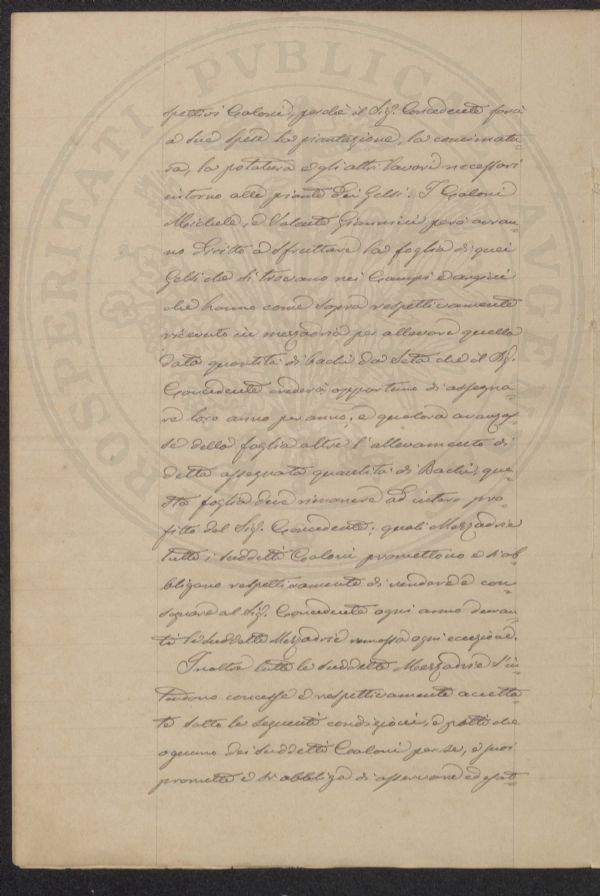 spettivi Coloni, perchè il Sig.r Concedente farà
a sue spese la piantagione, la concimatu-
ra, la potatura e gli altri lavori necessari
intorno alle piante dei Gelsi. I Coloni
Michele, e Valente Giannini però avran-
no diritto a sfruttare la foglia di quei
Gelsi che si trovano nei Campi e argini
che hanno come sopra respettivamente
ricevuto in mezzadria per allevare quella
data quantità di bachi da Seta che il Sig.r
Concedente crederà opportuno di assegna-
re loro anno per anno; e qualora avanzas-
se della foglia oltre l'allevamento di
detta assegnata quantità di Bachi, que-
sta foglia deve rimanere ad intero pro-
fitto del Sig.r Concedente; quali Mezzadrie
tutti i suddetti Coloni promettono e s'ob-
bligano respettivamente di rendere e con-
segnare al Sig.r Concedente ogni anno duran-
ti le suddette Mezzadrie remossa ogni eccezione.
Inoltre tutte le suddette Mezzadrie s'in-
tendono concesse e respettivamente accetta-
te sotto le seguenti condizioni, e patti che
ognuno dei suddetti Coloni per se, e suoi
promette e si obbliga di osservare ed esat-
PROSPERITATI PVBLICAE AVGENDAE